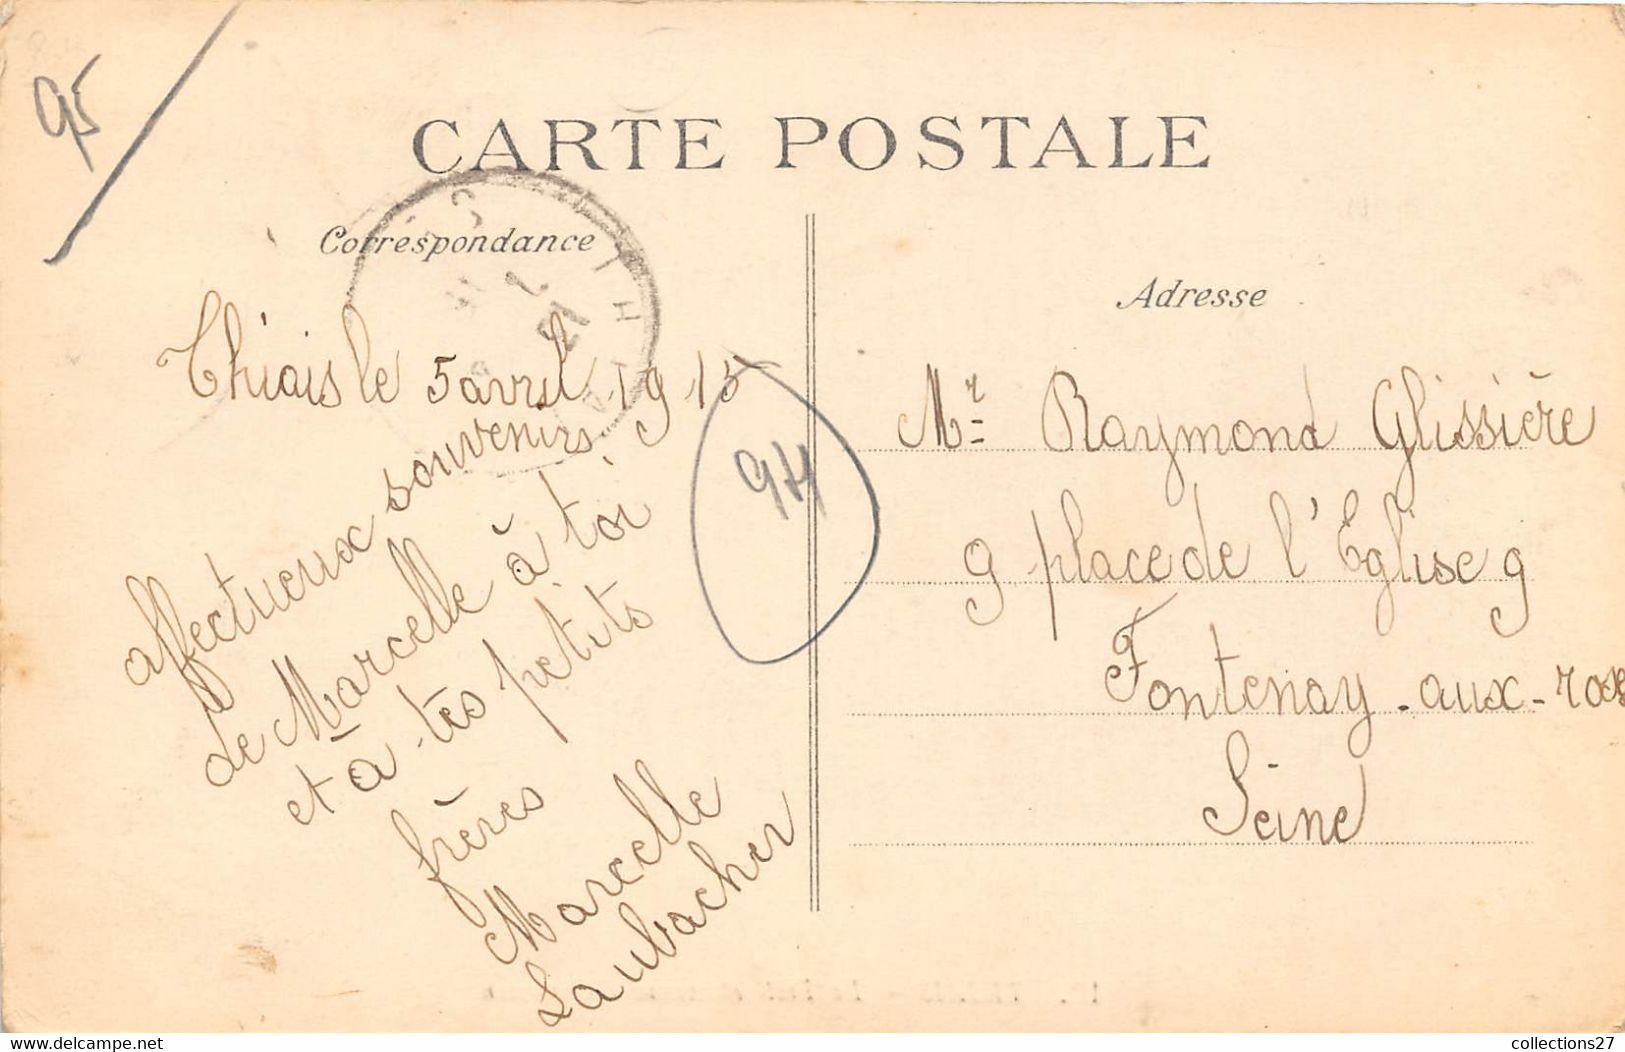 95
CARTE POSTALE
Correspondance
Thiais le 5 avril 1915
affectueux souvenirs
de Marcelle à toi
et à tes petits
frères
Marcelle
Laubacher
94
Adresse
Mr Raymond Glissière
9 place de l'Eglise 9
Fontenay-aux-roses
Seine
www.delcampe.net
collections27